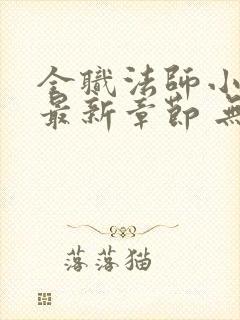 全職法師小
最新章節 無
落落猫